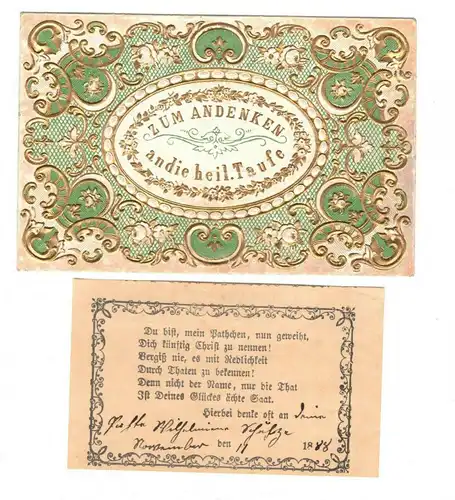 ZUM ANDENKEN
an die heil. Taufe
Du bist, mein Pathchen, nun geweiht,
Dich künftig Christ zu nennen!
Vergiß nie, es mit Redlichkeit
Durch Thaten zu bekennen!
Denn nicht der Name, nur die That
Ist Deines Glückes ächte Saat.
Hierbei denke oft an Deine
Wilhelmine
November den 11 18